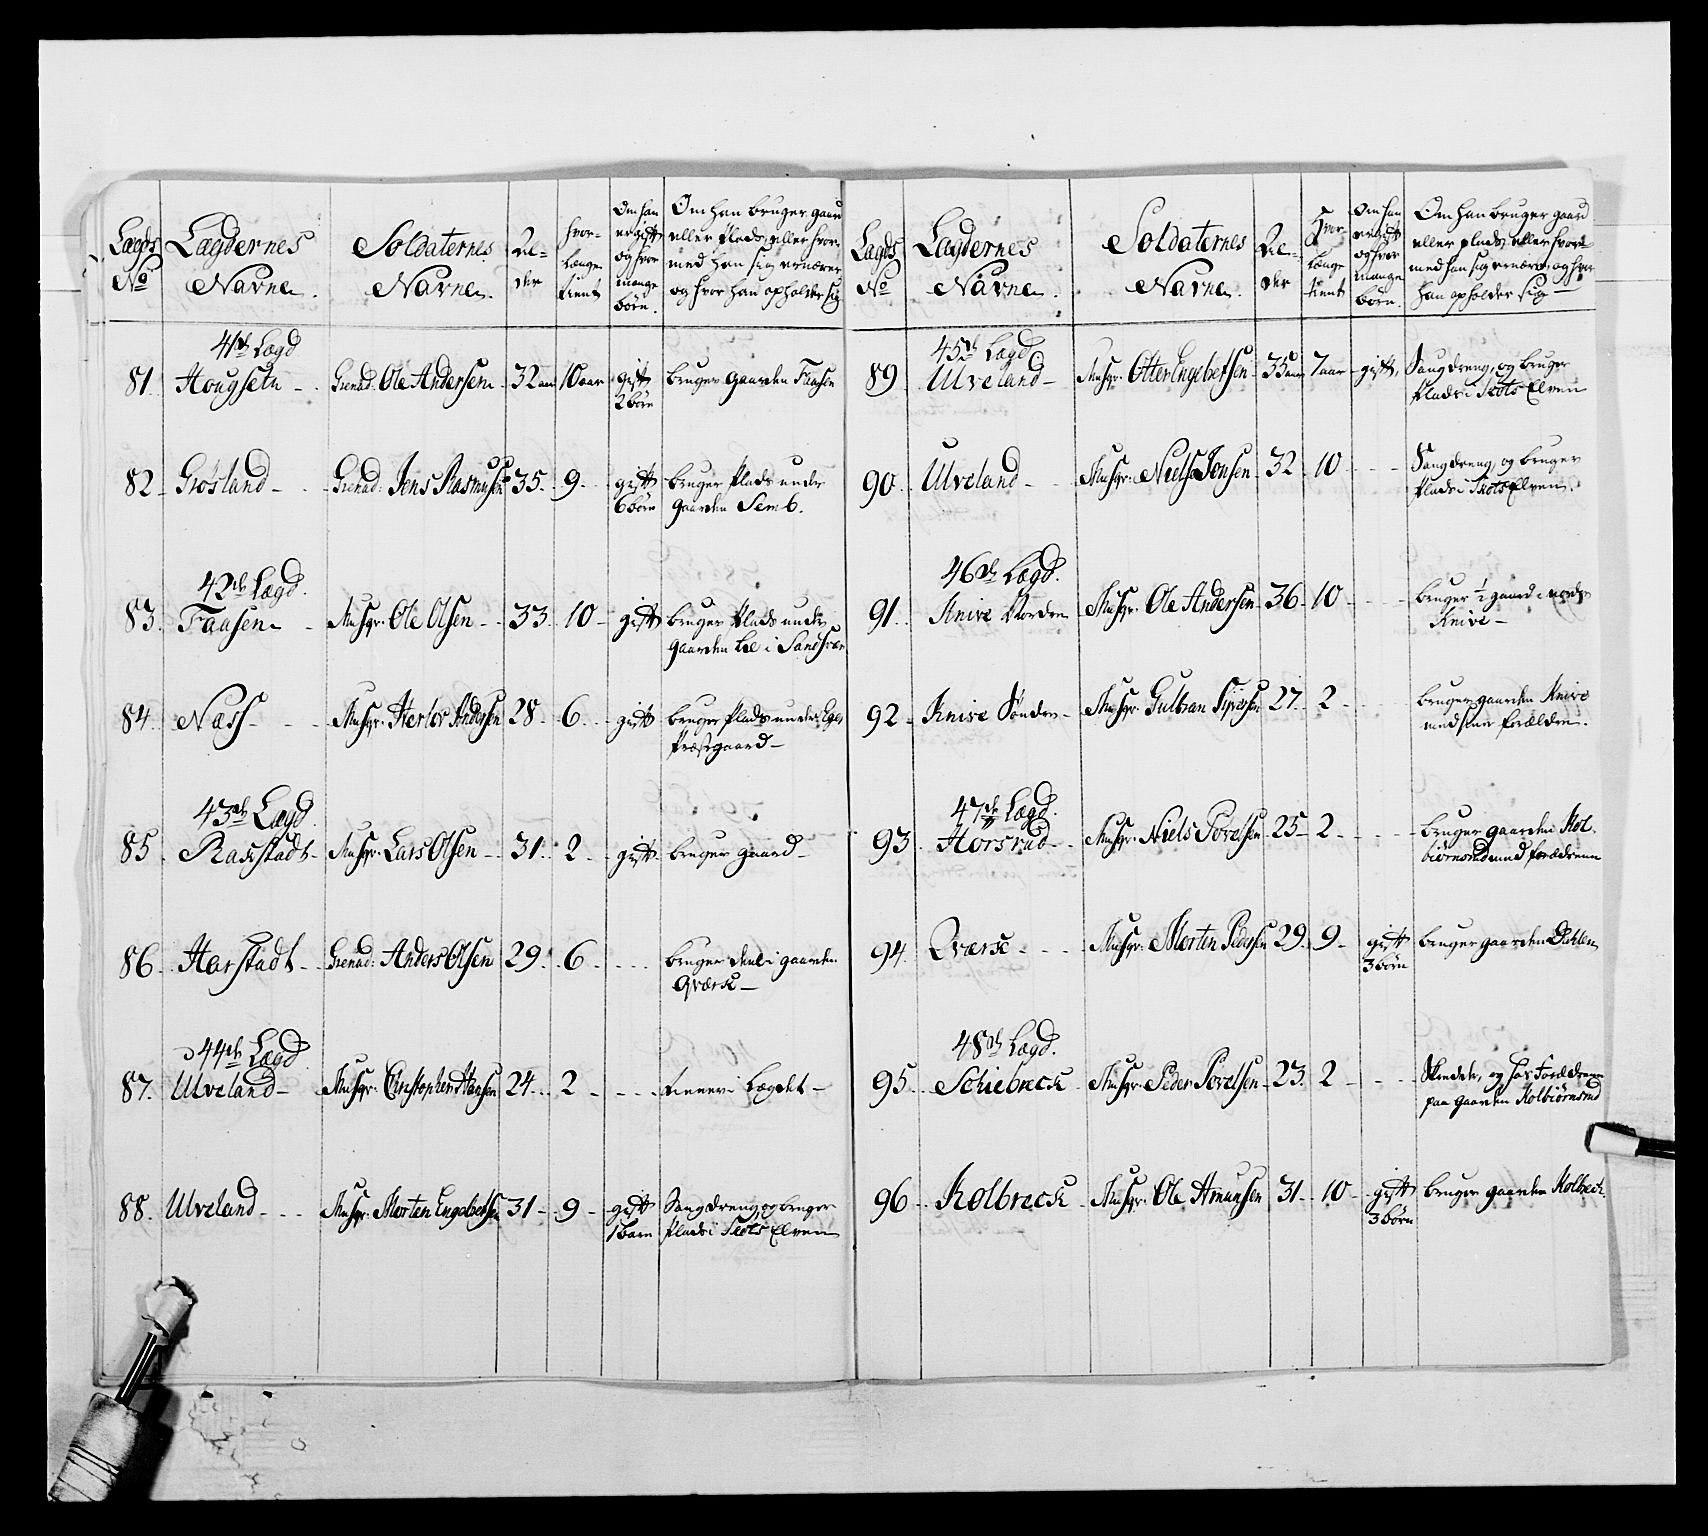 Lægds No | Lægdernes Navne. | Soldaternes Navne. | Al-der | hvor-længe tient | Om han er gift og hvor mange børn. | Om han bruger gaard eller Plads, eller hvor-med han sig ernærer og hvor han opholder sig
41de Lægd
81. Hougsetn - Grenad: Ole Andersen 32 aar 10 aar gift 2 børn bruger gaarden Faasen
82 Grøsland - Grenad: Jens Rasmusen 35 9 gift 6 børn bruger Plads under
gaarden Semb.
42de Lægd.
83. Faasen - Musqr: Ole Olsen 33 10 gift bruger Plads under
gaarden Lie i Sandsvær
84. Næss - Musqr: Herlov Andersen 28 6 gift bruger Plads under Eger
Præstegaard -
43de Lægd.
85. Raaestadt - Musqr: Lars Olsen 31 2 gift bruger gaard -
86. Harstadt - Grenad: Anders Olsen 29 6 bruger deel i gaarden
Qværk -
44de Lægd
87. Ulveland - Musqr: Christopher Hansen 24 2 tiener i Lægdet -
88. Ulveland - Musqr: Morten Engebretsen 31 9 gift 1 barn Saugdreng, og bruger
Plads i Skots Elven
Lægds No | Lægdernes Navne. | Soldaternes Navne. | Al-der | Hvor længe tient | Om han er gift og hvor mange børn. | Om han bruger gaard eller plads, eller hvor-med han sig ernærer, og hvor han opholder sig -
45de Lægd
89 Ulveland - Musqr: Otter Engebretsen 35 aar 7 aar gift, Saugdreng, og bruger
Plads i Skots Elven
90. Ulveland - Musqr: Niels Jensen 32 10 Saugdreng, og bruger
Plads i Skots Elven.
46de Lægd.
91. Knive Norden Musqr: Ole Andersen 36 10 bruger 1/2 gaard i norden
Knive -
92. Knive Sønden - Musqr: Gulbran Syversen 27 2 bruger gaarden Knive
med sine forældre.
47de Lægd.
93. Horsrud - Musqr: Niels Torelsen 25 2 bruger gaarden Kol-
biørnsrud med forældrene
94. Qværk - Musqr: Morten Pedersen 29 9 gift 3 børn bruger gaarden Dahlen
48de Lægd.
95. Schiebreck Musqr: Peder Torelsen 23 2 og hos Forældrene
paa gaarden Kolbiørnsrud
96. Kolbreck Musqr: Ole Amunsen 31 10 gift 3 børn bruger gaarden Kolbreck